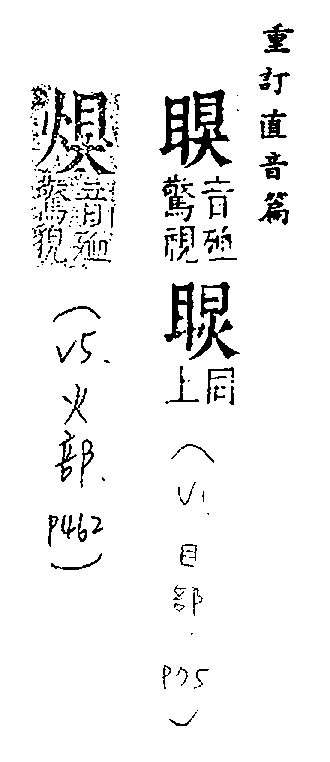 重訂直音篇
瞁 音殈
驚視
同
上
(V1. 目部. P75)
音殈
驚貌
(V5. 火部. P462)